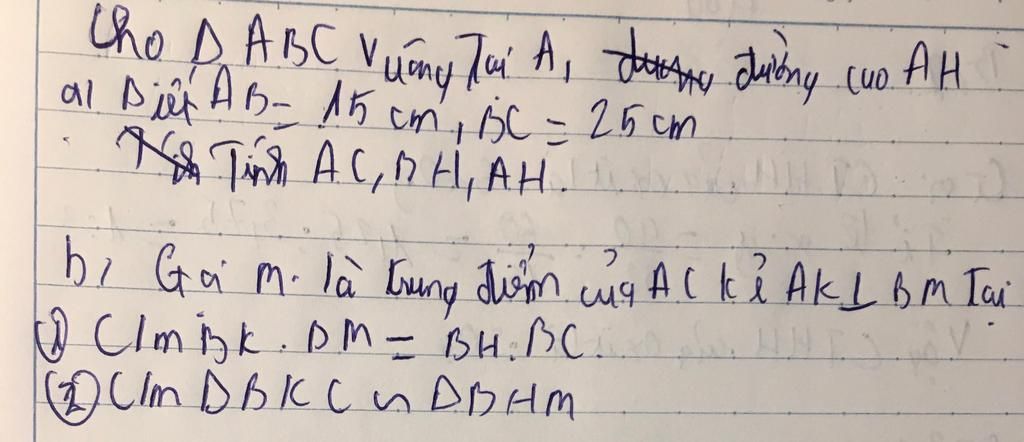 Cho Δ ABC Vuông Tại A, đường cao AH
a) Biết AB = 15 cm, BC = 25 cm
Tính AC, BH, AH.
b, Gọi M. là trung điểm của AC kẻ AK ⊥ BM Tại
① C/m BK. BM = BH. BC.
② C/m Δ BKC ∽ Δ BHM